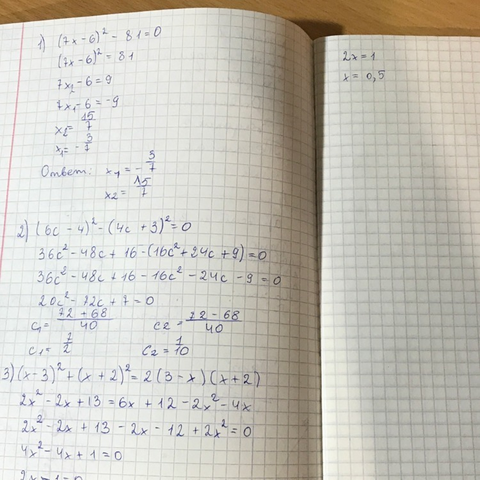 1) (7x-6)² - 81=0
(7x-6)² = 81
7x₂-6=9
7x₁-6=-9
x₂= 15/7
x₁= - 3/7
Ответ: x₁ = - 3/7
x₂ = 15/7
2) (6c - 4)² - (4c + 3)² = 0
36c² - 48c + 16 - (16c² + 24c + 9) = 0
36c² - 48c + 16 - 16c² - 24c - 9 = 0
20c² - 72c + 7 = 0
c₁ = (72 + 68)/40 c₂ = (72 - 68)/40
c₁ = 7/2 c₂ = 1/10
3) (x-3)² + (x+2)² = 2(3-x)(x+2)
2x² - 2x + 13 = 6x + 12 - 2x² - 4x
2x² - 2x + 13 - 2x - 12 + 2x² = 0
4x² - 4x + 1 = 0
2x - 1 = 0
2x = 1
x = 0,5